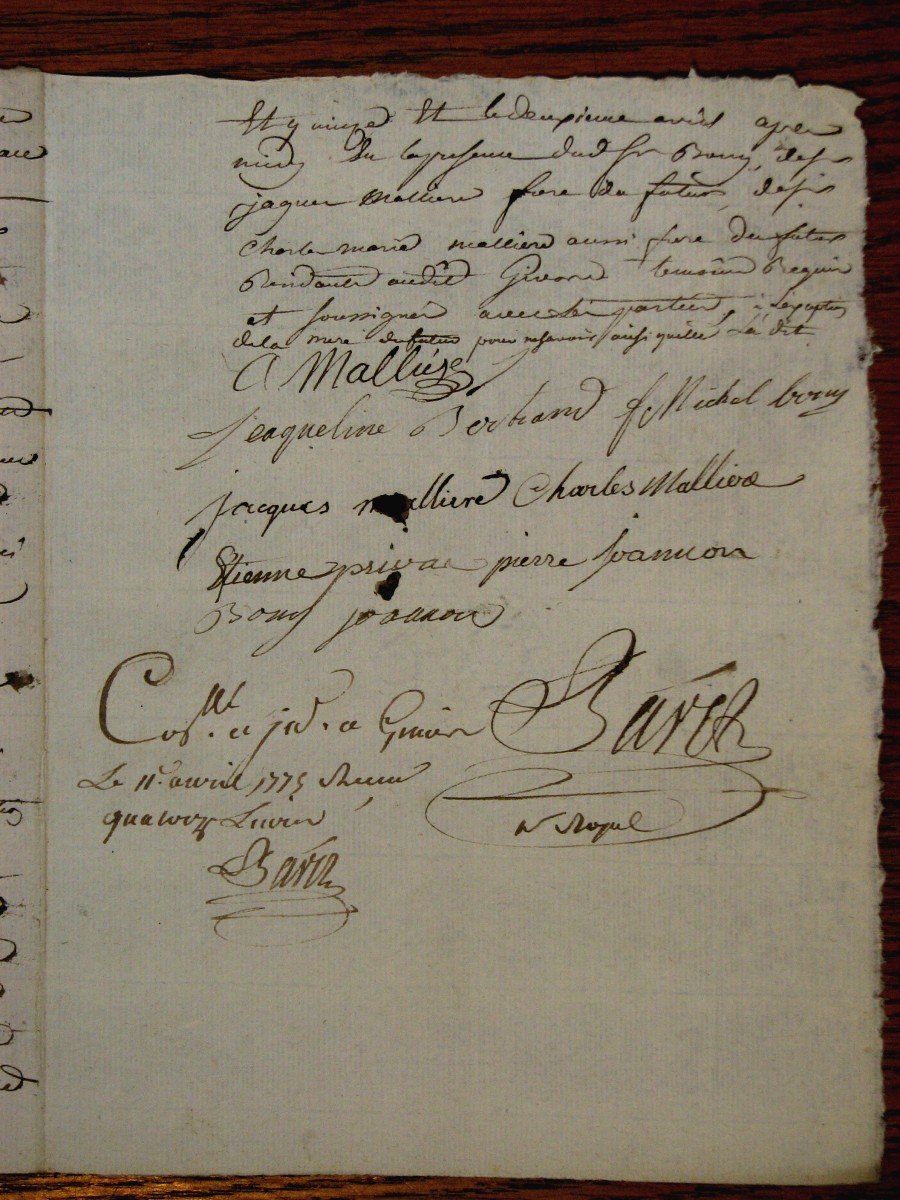 Et le deuxieme avril apres
midy En la presence dud Sr Bouy, de sr
jaques Malliere frere du futur, de sr
Charle marie malliere aussi frere du futur
audit Givord temoins Requis
et soussignés avec les parties, à l'exception
de la mere du futur pour ne savoir ainsi quelle La dit
Malliere
Jeaqueline Bertrand Michel bouy
jacques malliere Charles Malliere
Etienne privat pierre Joannon
Bouy joannon
Conlle et jné a Givors Baret
Le 11e avril 1775 Recu
quatorze Livres
nre Royal
Baret